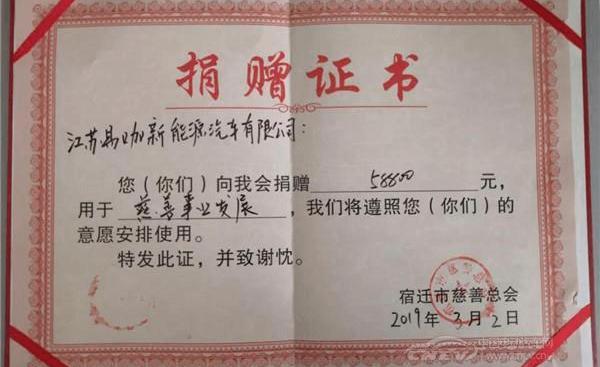 捐赠证书
江苏易咖新能源汽车有限公司：
您（你们）向我会捐赠 58800 元，
用于 慈善事业发展 ，我们将遵照您（你们）的
意愿安排使用。
特发此证，并致谢忱。
宿迁市慈善总会
2019年3月2日